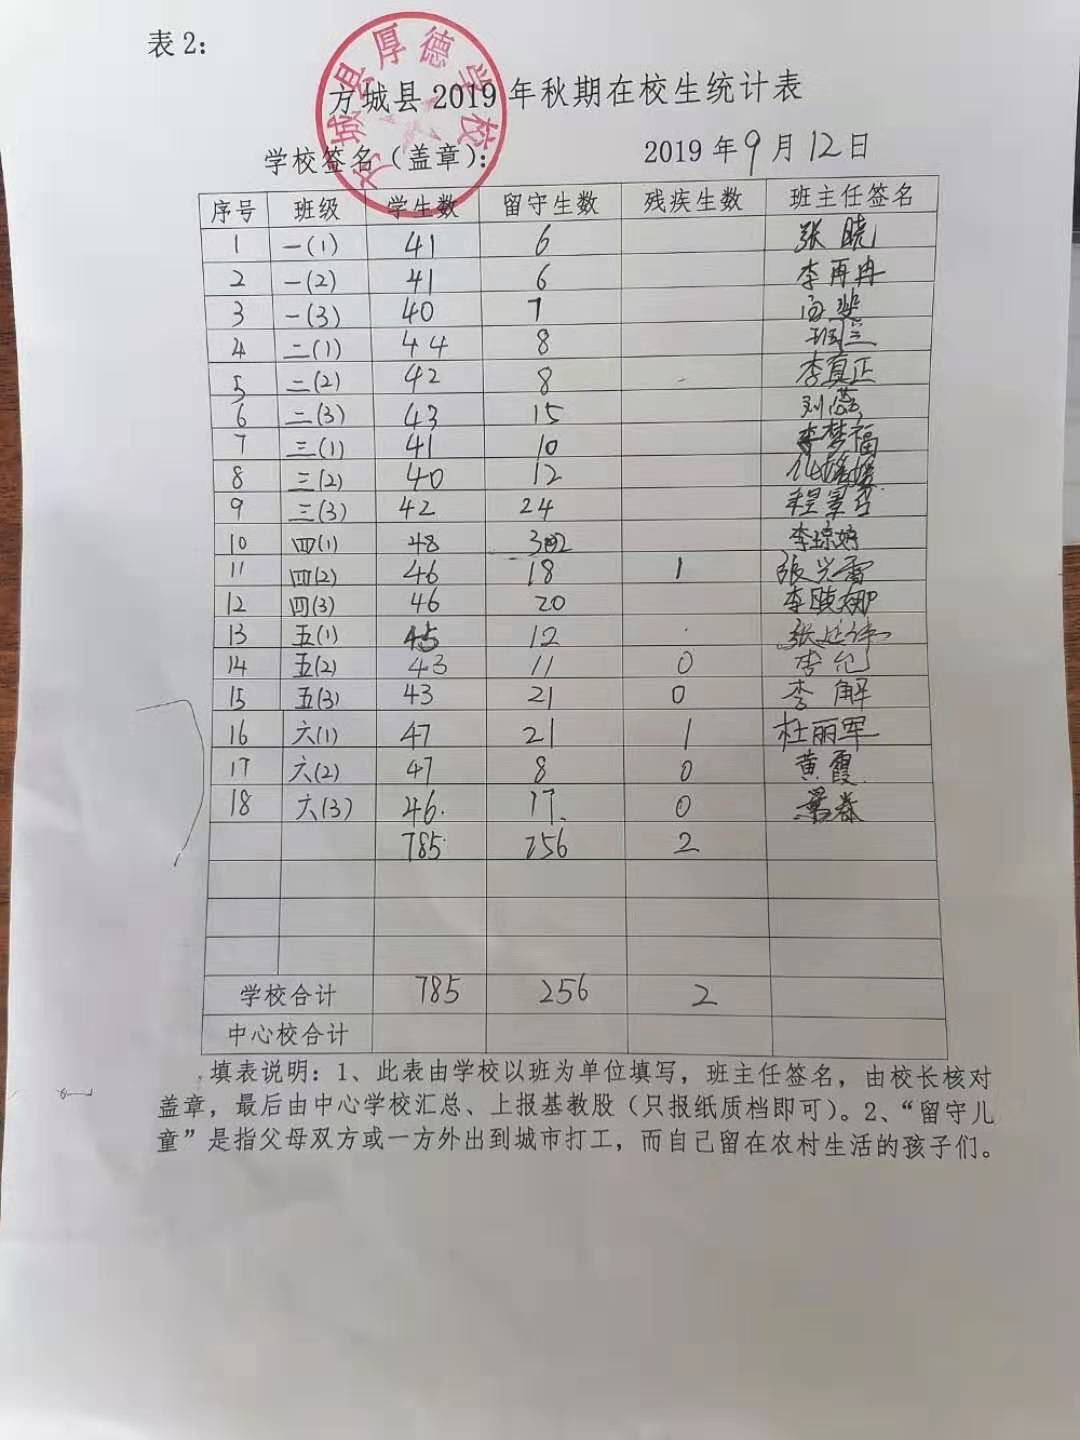 表2：
方城县厚德学校
方城县2019年秋期在校生统计表
学校签名（盖章）： 2019年9月12日
序号 班级 学生数 留守生数 残疾生数 班主任签名
1 一(1) 41 6 张晓
2 一(2) 41 6 李再冉
3 一(3) 40 7
4 二(1) 44 8
5 二(2) 42 8 李真正
6 二(3) 43 15 刘蕊
7 三(1) 41 10 李梦福
8 三(2) 40 12
9 三(3) 42 24
10 四(1) 48 李琼婷
11 四(2) 46 18 1 张兴雷
12 四(3) 46 20 李晓娜
13 五(1) 45 12
14 五(2) 43 11 0
15 五(3) 43 21 0 李解
16 六(1) 47 21 1 杜丽军
17 六(2) 47 8 0 黄霞
18 六(3) 46. 17. 0
785. 256 2
学校合计 785 256 2
中心校合计
填表说明：1、此表由学校以班为单位填写，班主任签名，由校长核对
盖章，最后由中心学校汇总、上报基教股（只报纸质档即可）。2、“留守儿
童”是指父母双方或一方外出到城市打工，而自己留在农村生活的孩子们。